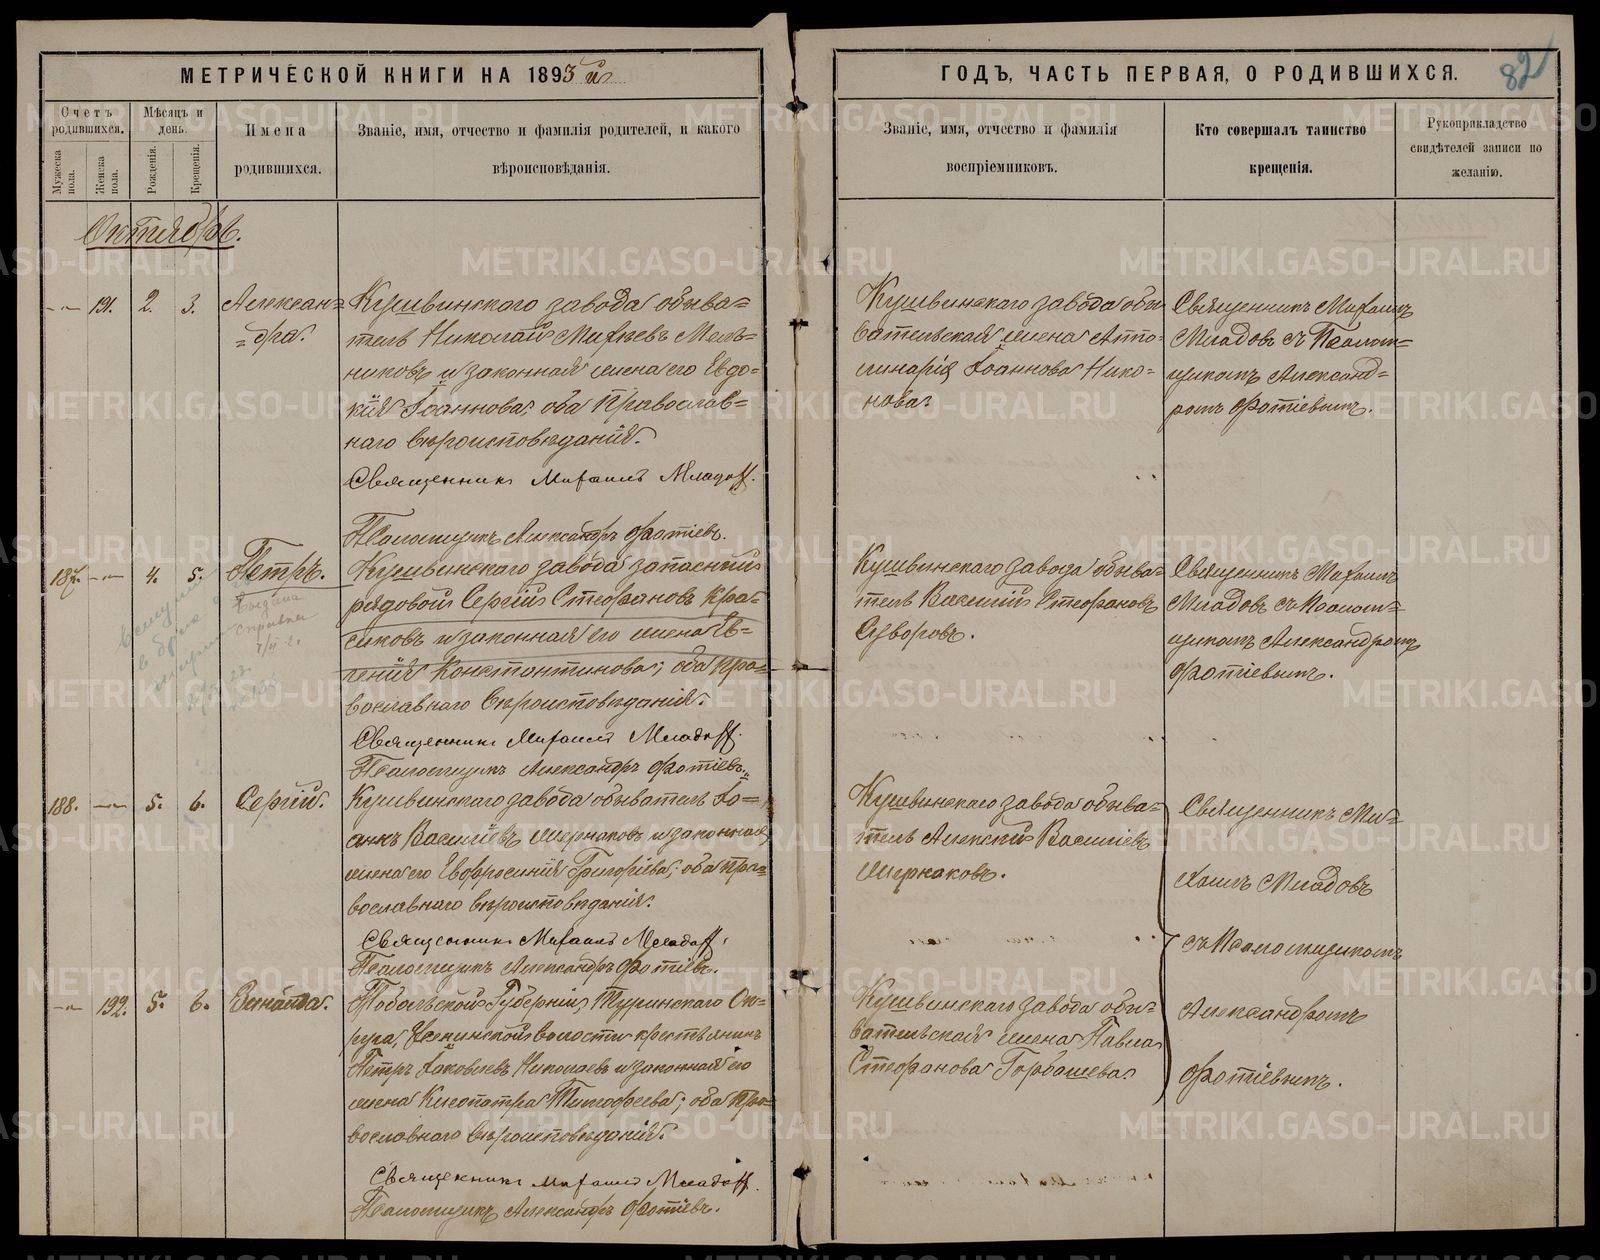 МЕТРИЧЕСКОЙ КНИГИ НА 1893й
ГОДЪ, ЧАСТЬ ПЕРВАЯ, О РОДИВШИХСЯ.
82
Счетъ родившихся.
Мѣсяцъ и день.
Мужеска пола.
Женска пола.
Рожденія.
Крещенія.
Имена родившихся.
Званіе, имя, отчество и фамилія родителей, и какого
вѣроисповѣданія.
Званіе, имя, отчество и фамилія
воспріемниковъ.
Кто совершалъ таинство
крещенія.
Рукоприкладство
свидѣтелей записи по
желанію.
Октябрь.
191. 2. 3.
Алексан=
=дра.
Кушвинскаго завода обыва=
тель Николай Михѣевъ Мель=
никовъ и законная жена его Евдо=
кія Іоаннова; оба Православ=
наго вѣроисповѣданія.
Священникъ Михаилъ Младоff.
Псаломщикъ Александръ Фотіевъ.
Кушвинскаго завода обы
вательская жена Аппо-
линарія Іоаннова Нико-
нова.
Священникъ Михаилъ
Младовъ съ Псалом=
щикомъ Александ=
ромъ Фотіевымъ.
187. 4. 5.
Петръ.
Выдана
справка
Кушвинскаго завода запасный
рядовой Сергій Стефановъ Кра=
сиковъ и законная его жена Ев=
генія Константинова; оба пра=
вославнаго вѣроисповѣданія.
Священникъ Михаилъ Младоff.
Псаломщикъ Александръ Фотіевъ.
Кушвинскаго завода обыва=
тель Василій Стефановъ
Суворовъ.
Священникъ Михаилъ
Младовъ съ Псалом=
щикомъ Александромъ
Фотіевымъ.
188. 5. 6.
Сергій.
Кушвинскаго завода обыватель Іо=
аннъ Василіевъ Ширнаковъ и законная
жена его Евфросинія Григоріева; оба пра=
вославнаго вѣроисповѣданія.
Священникъ Михаилъ Младоff.
Псаломщикъ Александръ Фотіевъ.
Кушвинскаго завода обыва=
тель Алексій Василіевъ
Ширнаковъ.
Священникъ Ми=
хаилъ Младовъ
съ Псаломщикомъ
Александромъ
Фотіевымъ.
192. 5. 6.
Зинаида.
Тобольской Губерніи, Туринскаго Ок=
руга, волости крестьянинъ
Петръ Іаковлевъ Николаевъ и законная его
жена Клеопатра Тимофеева; оба пра=
вославнаго вѣроисповѣданія.
Священникъ Михаилъ Младоff.
Псаломщикъ Александръ Фотіевъ.
Кушвинскаго завода обы=
вательская жена Павла
Стефанова Горбашева.
METRIKI.GASO-URAL.RU